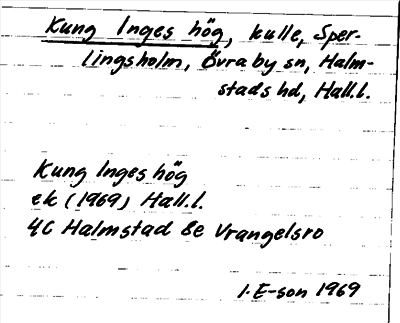 Kung Inges hög, kulle, Sper-
lingsholm, Övraby sn, Halm-
stads hd, Hall.l.
Kung Inges hög
ek (1969) Hall.l.
4C Halmstad 8e Vrangelsro
I. E-son 1969